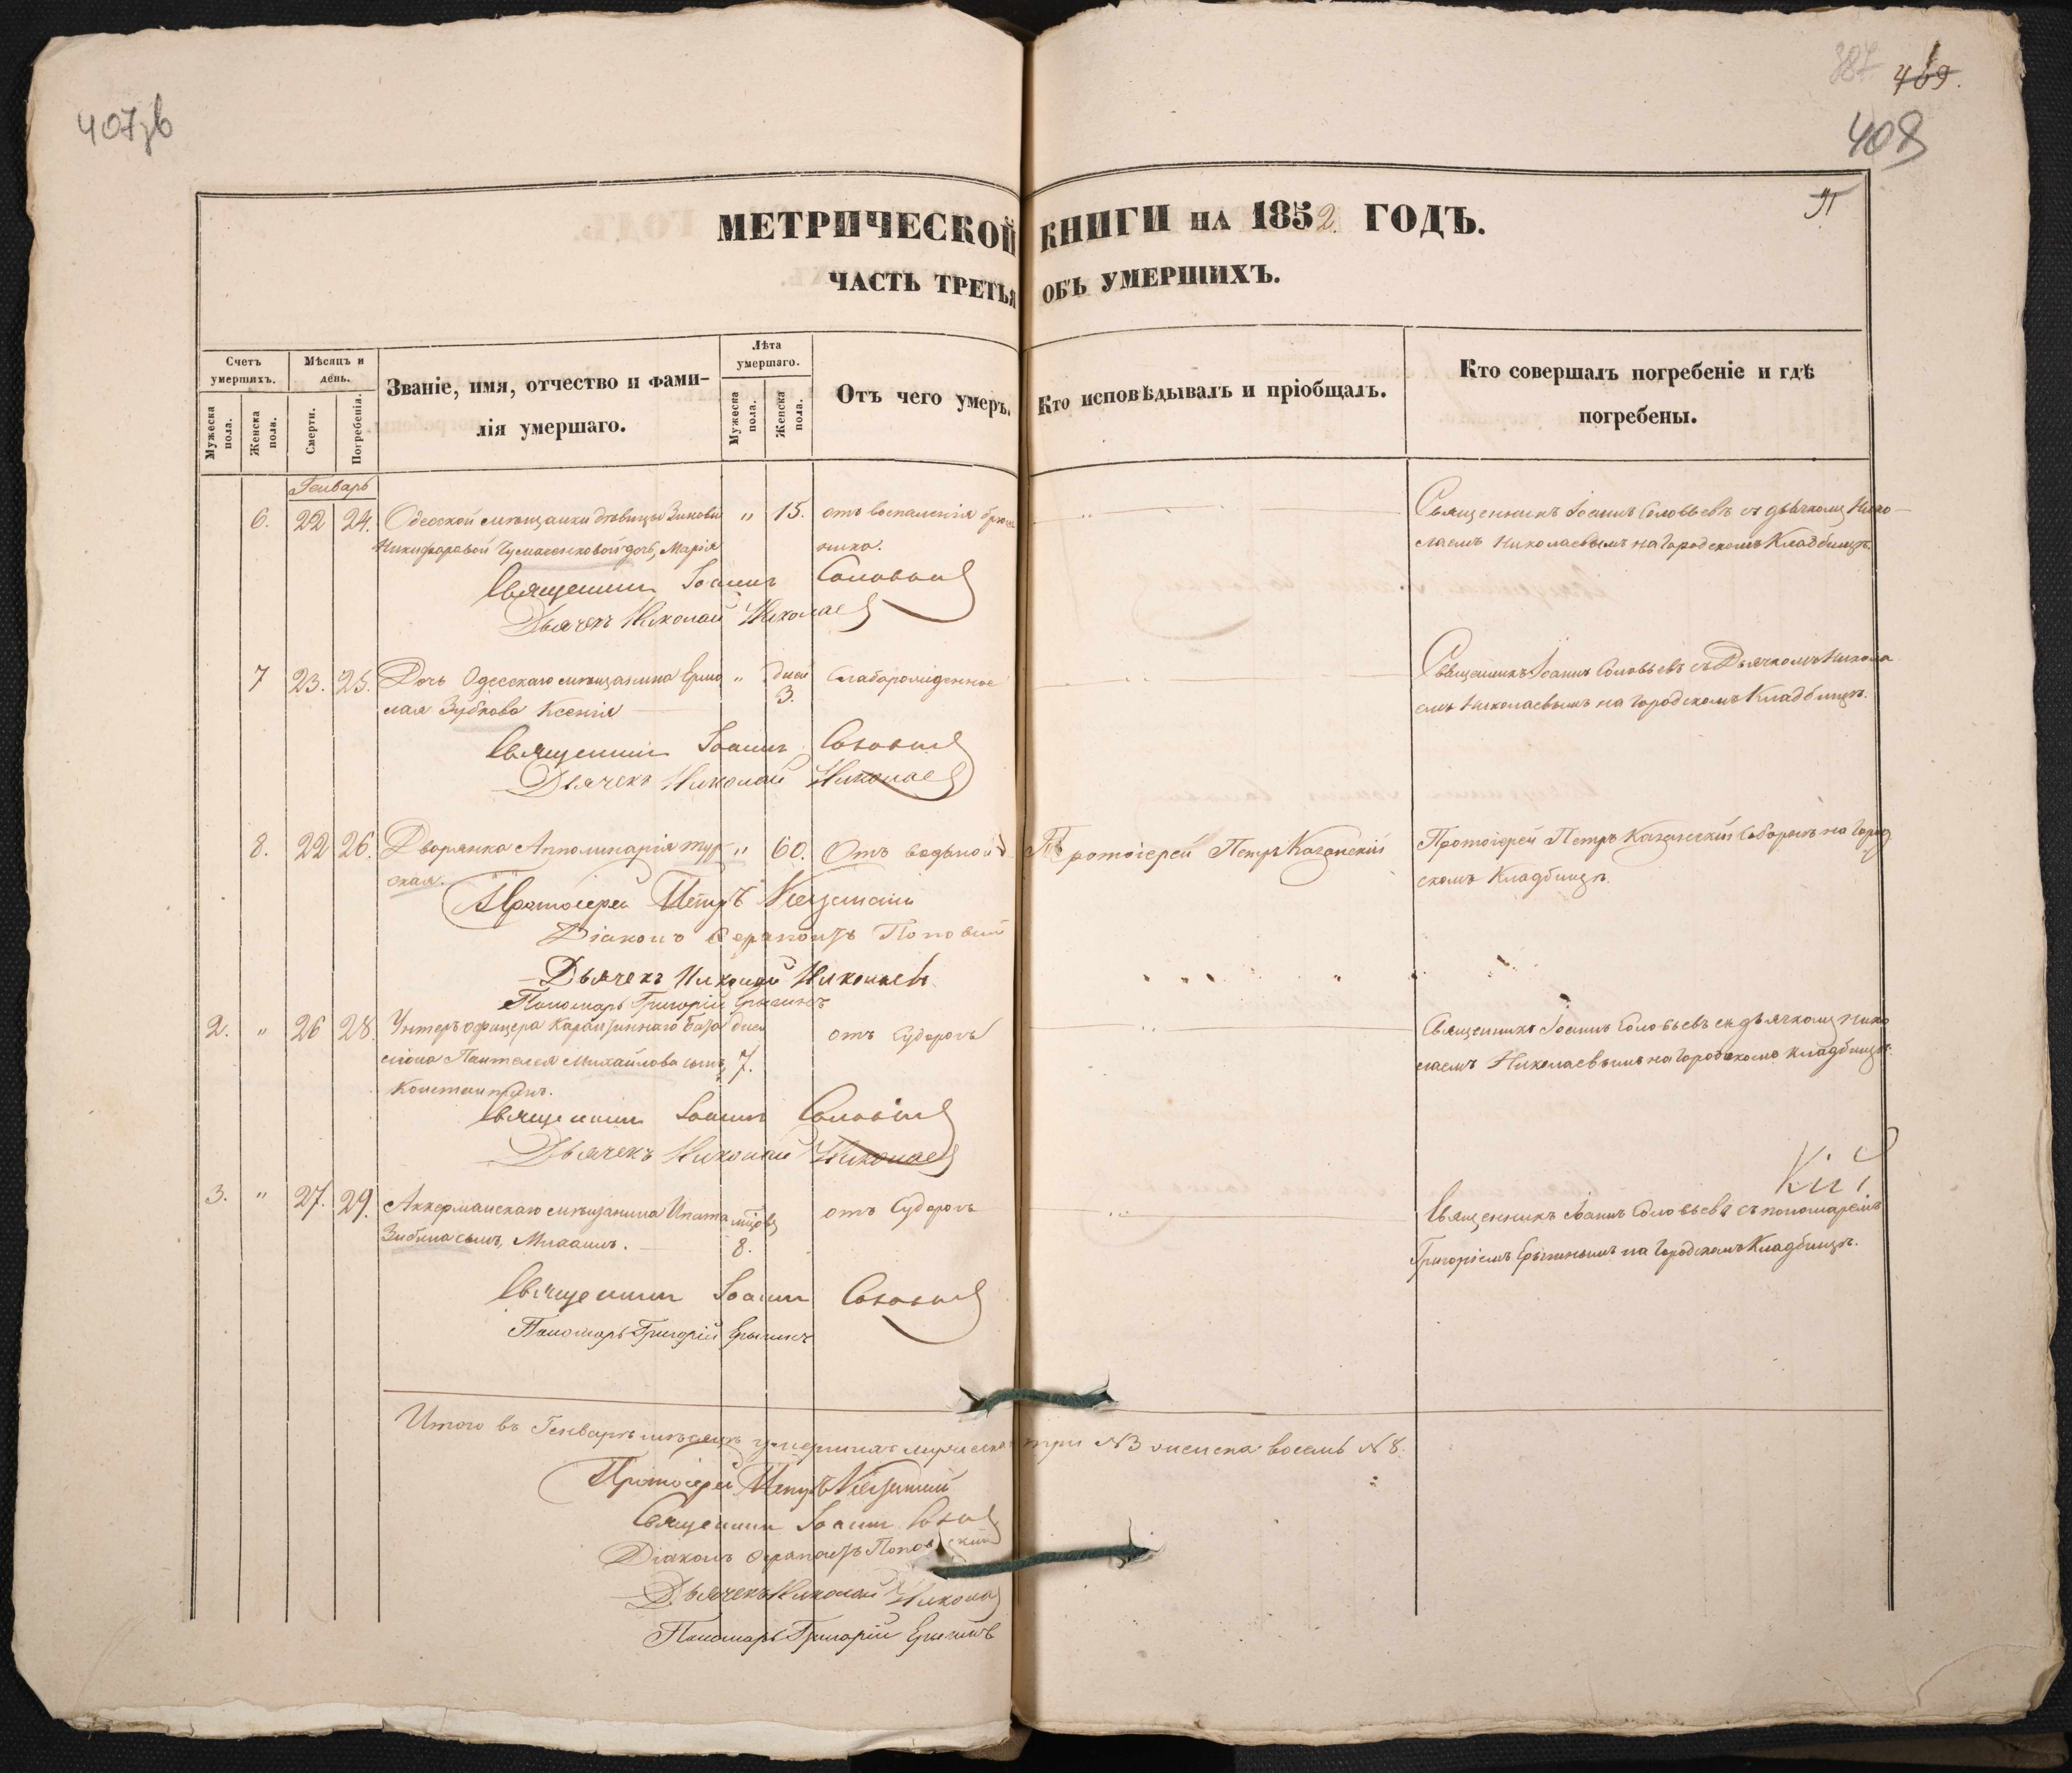 407зв
387
409.
408
МЕТРИЧЕСКОЙ КНИГИ НА 1852. ГОДЪ.
ЧАСТЬ ТРЕТЬЯ ОБЪ УМЕРШИХЪ.
Счетъ умершихъ.
Мужеска пола.
Женска пола.
Мѣсяцъ и день.
Смерти.
Погребенія.
Званіе, имя, отчество и фамилія умершаго.
Лѣта умершаго.
Мужеска пола.
Женска пола.
Отъ чего умеръ.
Кто исповѣдывалъ и пріобщалъ.
Кто совершалъ погребеніе и гдѣ погребены.
Генварь
6. 22 24. Одесской мѣщанки дѣвицы Зиновіи " 15. отъ воспаленія брюш- Священникъ Іоаннъ Соловьевъ съ дьячкомъ Нико-
Никифоровой Чумаченковой дочь, Марія ника. лаемъ Николаевымъ на Городскомъ Кладбищѣ.
Священникъ Іоаннъ Соловьевъ
Дьячекъ Николай Николаевъ
7 23. 25. Дочь Одесскаго мѣщанина Ермо " дней Слаборожденное Священникъ Іоаннъ Соловьевъ съ Дьячкомъ Никола
лая Зубкова Ксенія 3. емъ Николаевымъ на городскомъ Кладбищѣ.
Священникъ Іоаннъ Соловьевъ
Дьячекъ Николай Николаевъ
8. 22 26. Дворянка Апполинарія Тур " 60. Отъ водяной Протоіерей Петръ Казанскій Протоіерей Петръ Казанскій Соборомъ на Город
ская. скомъ Кладбищѣ.
Протоіерей Петръ Казанскій
Діаконъ Ѳерапонтъ
Дьячекъ Николай Николаевъ
Пономарь Григорій Ерыгинъ
2. " 26 28. Унтеръ офицера Карантиннаго бата дней отъ Судорогъ Священникъ Іоаннъ Соловьевъ съ дьячкомъ Нико
ліона Пантелея Михайлова сынъ, 7. лаемъ Николаевымъ на Городскомъ кладбищѣ.
Константинъ.
Священникъ Іоаннъ Соловьевъ
Дьячекъ Николай Николаевъ
3. " 27. 29. Аккерманскаго мѣщанина Ипата мѣсяцъ отъ Судорогъ Священникъ Іоаннъ Соловьевъ съ пономаремъ
Зибина сынъ, 8. Григоріемъ Ерыгинымъ на Городскомъ Кладбищѣ.
Священникъ Іоаннъ Соловьевъ
Пономарь Григорій Ерыгинъ
Итого въ Генварѣ мѣсяцѣ умершихъ мужеска три №3 женска восемь №8.
Протоіерей Петръ Казанскій
Священникъ Іоаннъ Соловьевъ
Діаконъ Ѳерапонтъ
Дьячекъ Николай Николаевъ
Пономарь Григорій Ерыгинъ